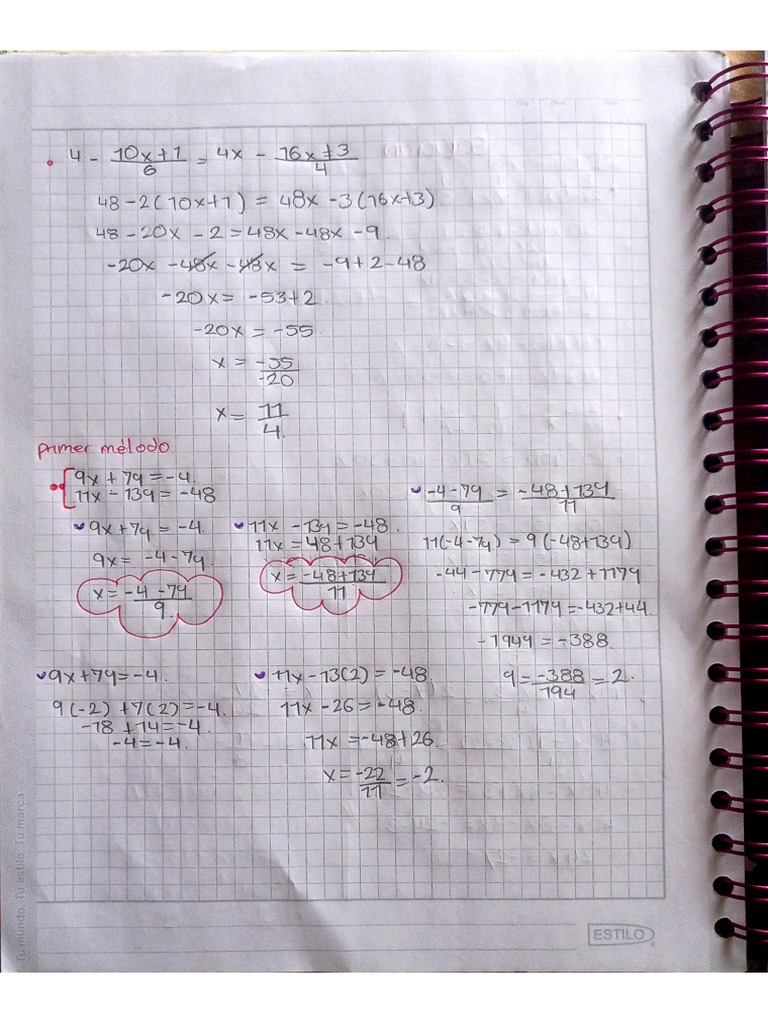 4 - 10x+1/6 = 4x - 16x+3/4
48-2(10x+1) = 48x-3(16x+3)
48-20x-2=48x-48x-9.
-20x-48x-48x = -9+2-48
-20x= -53+2.
-20x=-55
x = -55/-20
x= 11/4.
primer método
9x+7y=-4.
11x-13y=-48
9x+7y=-4.
9x= -4-7y.
x=-4-7y/9
11x-13y=-48.
11x=48+13y
x=-48+13y/11
-4-7y/9 = -48+13y/11
11(-4-7y)=9(-48+13y)
-44-77y=-432+117y
-77y-117y=-432+44.
-194y=-388.
y=-388/194=2.
9x+7y=-4.
9(-2)+7(2)=-4.
-18+14=-4.
-4=-4.
11x-13(2)=-48.
11x-26=-48.
11x=-48+26.
x=-22/11=-2.
Tu mundo. Tu estilo. Tu marca
ESTILO